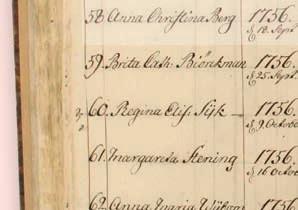 58 Anna Christina Berg 1756.
d. 18. Sept.
59. Brita Cath: Biörckman 1756.
d. 25 Sept.
60. Regina Elis: Sijk – 1756.
d. 9. Octob
61. Margareta Stening 1756.
d. 16 Octob
62. Anna Maria 1756.